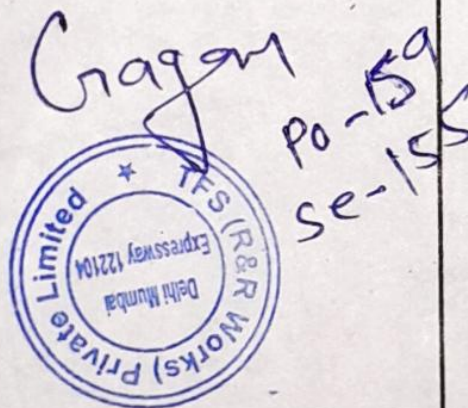 Gagan
PO-159
se-155
TFS (R&R Works) Private Limited
Delhi Mumbai
Expressway 122104